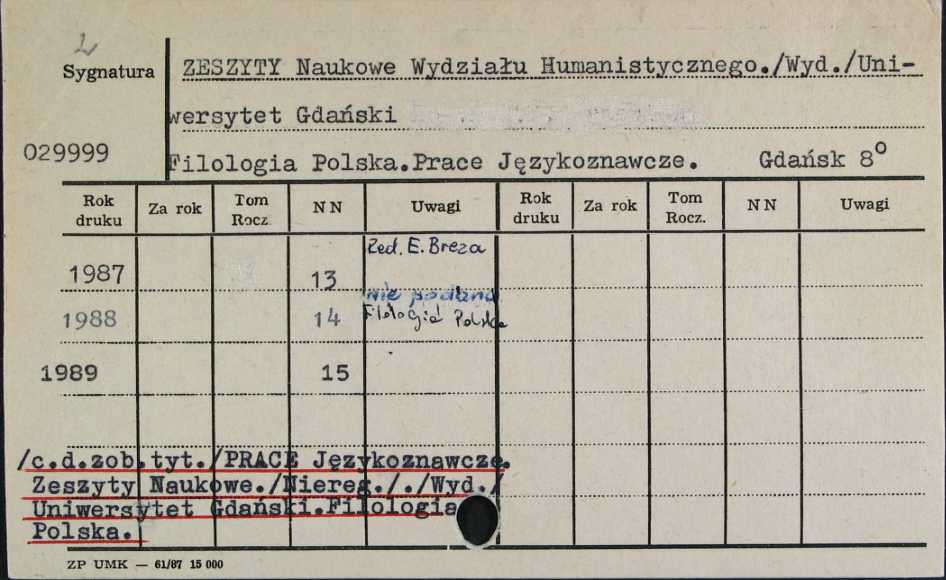 L
Sygnatura
ZESZYTY Naukowe Wydziału Humanistycznego./Wyd./Uni-
wersytet Gdański
029999
Filologia Polska.Prace Językoznawcze. Gdańsk 8º
Rok druku Za rok Tom Rocz. N N Uwagi Rok druku Za rok Tom Rocz. N N Uwagi
Red. E. Breza
1987 13
nie podano
1988 14 Filologia Polska
1989 15
/c.d.zob.tyt./PRACE Językoznawcze.
Zeszyty Naukowe./Niereg././Wyd./
Uniwersytet Gdański.Filologia
Polska.
ZP UMK — 61/87 15 000